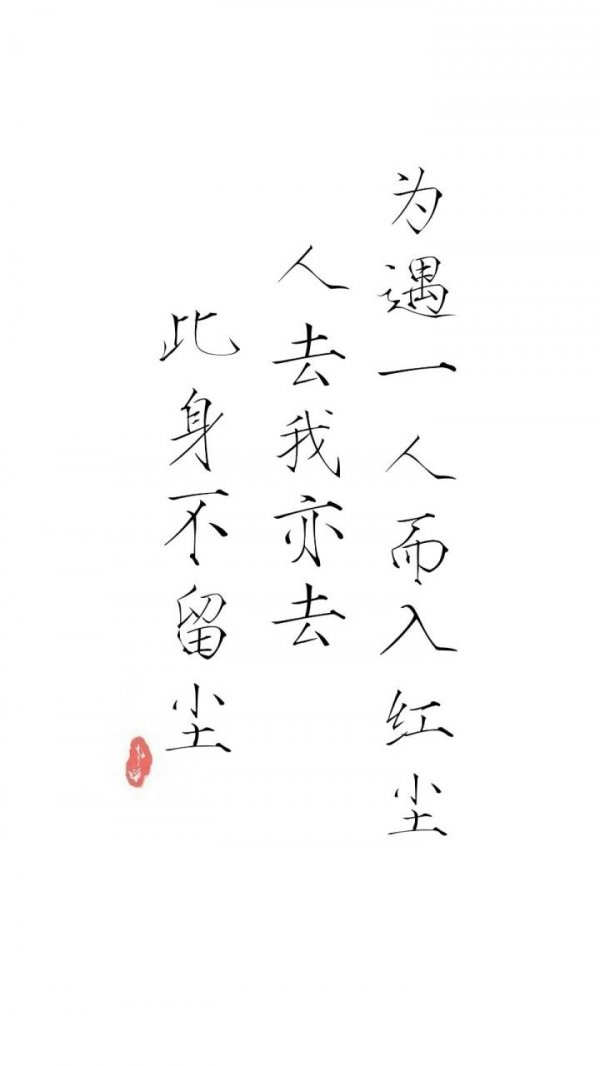 为遇一人而入红尘
人去我亦去
此身不留尘